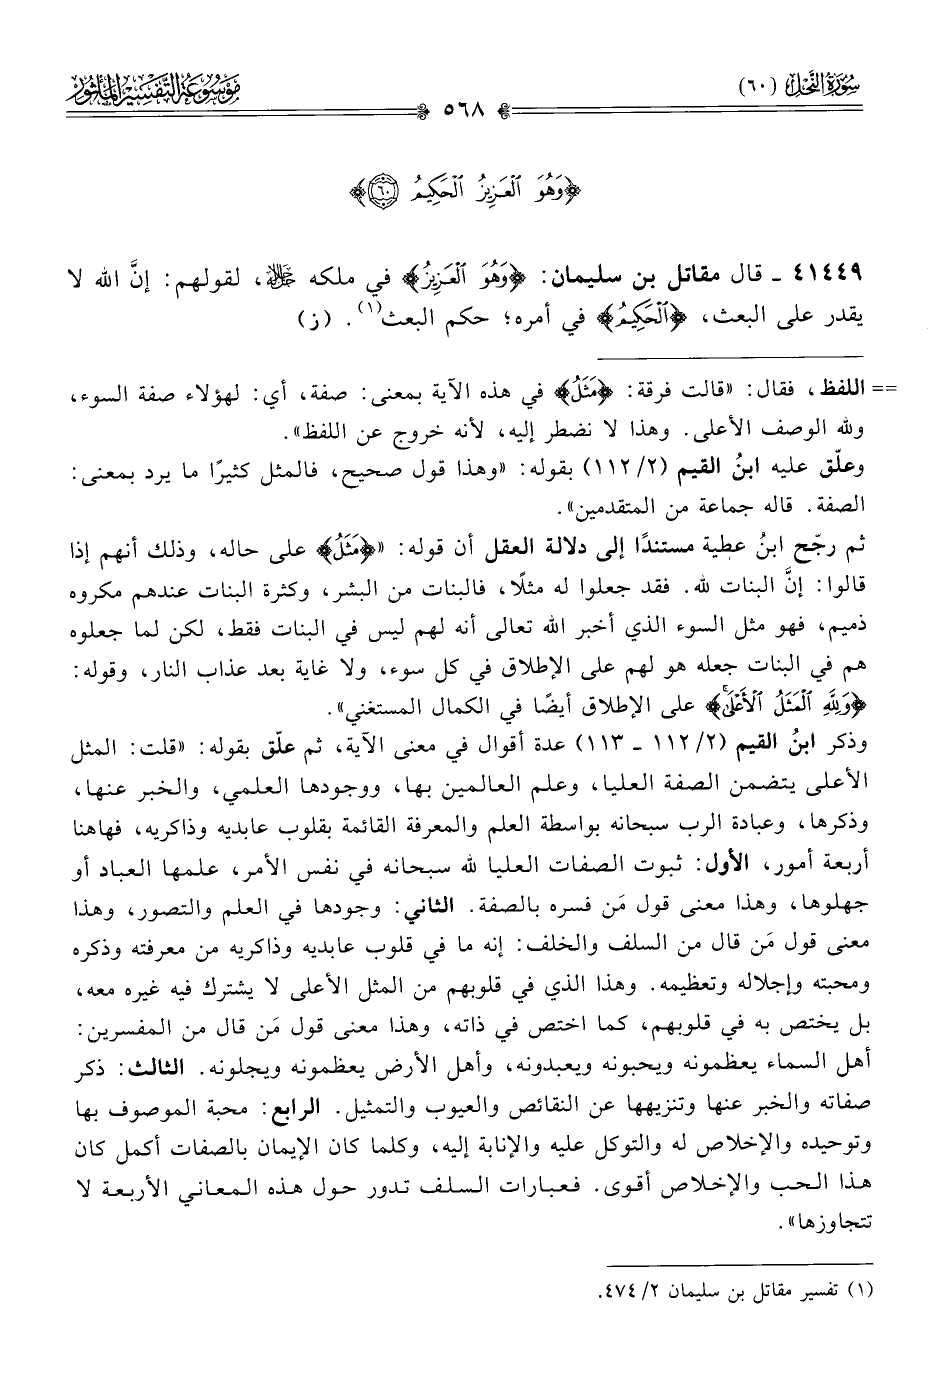 سُورَةُ النَّحْلِ (٦٠)
٥٦٨
مَوْسُوعَةُ التَّفْسِيرِ المَأْثُورِ
﴿وَهُوَ ٱلْعَزِيزُ ٱلْحَكِيمُ ٦٠﴾
٤١٤٤٩ ـ قال مقاتل بن سليمان: ﴿وَهُوَ ٱلْعَزِيزُ﴾ في ملكه جل جلاله، لقولهم: إنَّ الله لا
يقدر على البعث، ﴿ٱلْحَكِيمُ﴾ في أمره؛ حكم البعث(١). (ز)
== اللفظ، فقال: «قالت فرقة: ﴿مَثَلُ﴾ في هذه الآية بمعنى: صفة، أي: لهؤلاء صفة السوء،
ولله الوصف الأعلى. وهذا لا نضطر إليه، لأنه خروج عن اللفظ».
وعلّق عليه ابنُ القيم (١١٢/٢) بقوله: «وهذا قول صحيح، فالمثل كثيرًا ما يرد بمعنى:
الصفة. قاله جماعة من المتقدمين».
ثم رجّح ابنُ عطية مستندًا إلى دلالة العقل أن قوله: «﴿مَثَلُ﴾ على حاله، وذلك أنهم إذا
قالوا: إنَّ البنات لله. فقد جعلوا له مثلًا، فالبنات من البشر، وكثرة البنات عندهم مكروه
ذميم، فهو مثل السوء الذي أخبر الله تعالى أنه لهم ليس في البنات فقط، لكن لما جعلوه
هم في البنات جعله هو لهم على الإطلاق في كل سوء، ولا غاية بعد عذاب النار، وقوله:
﴿وَلِلَّهِ ٱلْمَثَلُ ٱلْأَعْلَىٰۚ﴾ على الإطلاق أيضًا في الكمال المستغني».
وذكر ابنُ القيم (١١٢/٢ ـ ١١٣) عدة أقوال في معنى الآية، ثم علّق بقوله: «قلت: المثل
الأعلى يتضمن الصفة العليا، وعلم العالمين بها، ووجودها العلمي، والخبر عنها،
وذكرها، وعبادة الرب سبحانه بواسطة العلم والمعرفة القائمة بقلوب عابديه وذاكريه، فهاهنا
أربعة أمور، الأول: ثبوت الصفات العليا لله سبحانه في نفس الأمر، علمها العباد أو
جهلوها، وهذا معنى قول مَن فسره بالصفة. الثاني: وجودها في العلم والتصور، وهذا
معنى قول مَن قال من السلف والخلف: إنه ما في قلوب عابديه وذاكريه من معرفته وذكره
ومحبته وإجلاله وتعظيمه. وهذا الذي في قلوبهم من المثل الأعلى لا يشترك فيه غيره معه،
بل يختص به في قلوبهم، كما اختص في ذاته، وهذا معنى قول مَن قال من المفسرين:
أهل السماء يعظمونه ويحبونه ويعبدونه، وأهل الأرض يعظمونه ويجلونه. الثالث: ذكر
صفاته والخبر عنها وتنزيهها عن النقائص والعيوب والتمثيل. الرابع: محبة الموصوف بها
وتوحيده والإخلاص له والتوكل عليه والإنابة إليه، وكلما كان الإيمان بالصفات أكمل كان
هذا الحب والإخلاص أقوى. فعبارات السلف تدور حول هذه المعاني الأربعة لا
تتجاوزها».
(١) تفسير مقاتل بن سليمان ٤٧٤/٢.